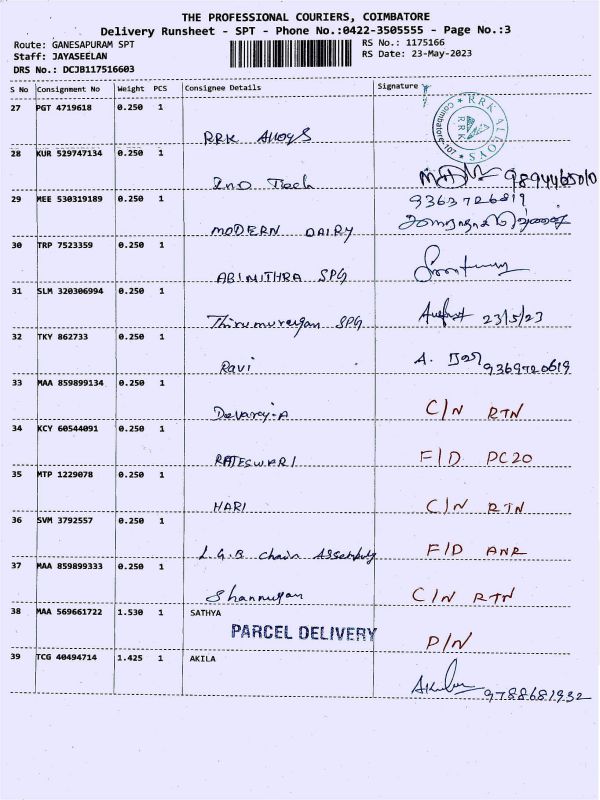 THE PROFESSIONAL COURIERS, COIMBATORE
Delivery Runsheet - SPT - Phone No.:0422-3505555 - Page No.:3
Route: GANESAPURAM SPT
RS No.: 1175166
Staff: JAYASEELAN
RS Date: 23-May-2023
DRS No.: DCJB117516603
S No Consignment No Weight PCS Consignee Details Signature
27 PGT 4719618 0.250 1
RRK ALLOYS
RRK ALLOYS
RRK
28 KUR 529747134 0.250 1
Ind Tech
29 MEE 530319189 0.250 1
9363726819
MODERN DAIRY
30 TRP 7523359 0.250 1
ABINITHRA SPG
31 SLM 320306994 0.250 1
Thirumurugan SPG 23/5/23
32 TKY 862733 0.250 1
Ravi A. ரவி 9369720619
33 MAA 859899134 0.250 1
Devaraj.A C/N RTN
34 KCY 60544091 0.250 1
RAJESWARI F/D PC20
35 MTP 1229078 0.250 1
HARI C/N RTN
36 SVM 3792557 0.250 1
L.G.B Chain Assembly F/D ANR
37 MAA 859899333 0.250 1
Shanmugan C/N RTN
38 MAA 569661722 1.530 1 SATHYA
PARCEL DELIVERY P/N
39 TCG 40494714 1.425 1 AKILA
9788681932